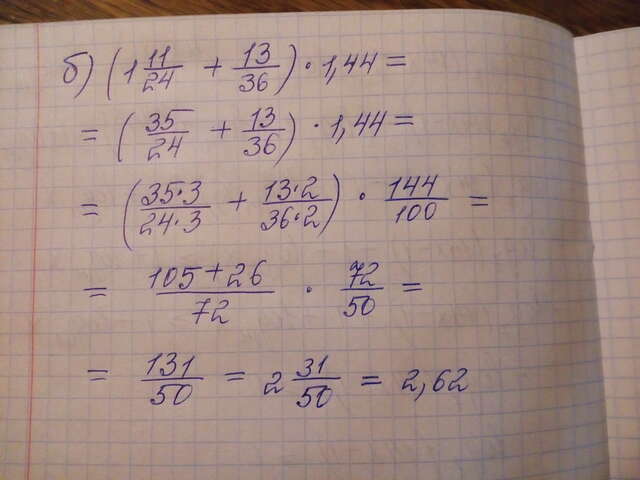 б) (1 11/24 + 13/36) · 1,44 =
= (35/24 + 13/36) · 1,44 =
= (35·3/24·3 + 13·2/36·2) · 144/100 =
= 105+26/72 · 72/50 =
= 131/50 = 2 31/50 = 2,62